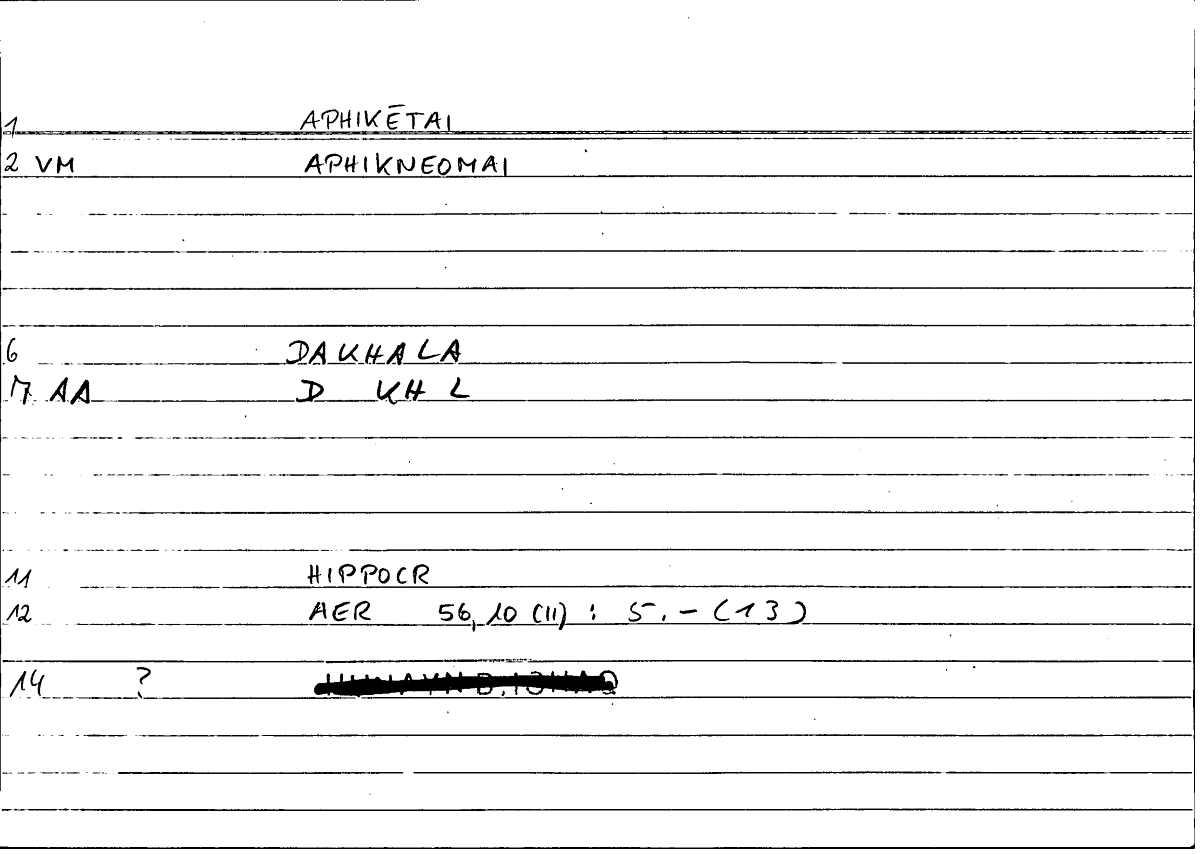 1 APHIKĒTAI
2 VM APHIKNEOMAI
6 DAKHALA
7 AA D KH L
11 HIPPOCR
12 AER 56,10 (11) : 5.-(13)
14 ?